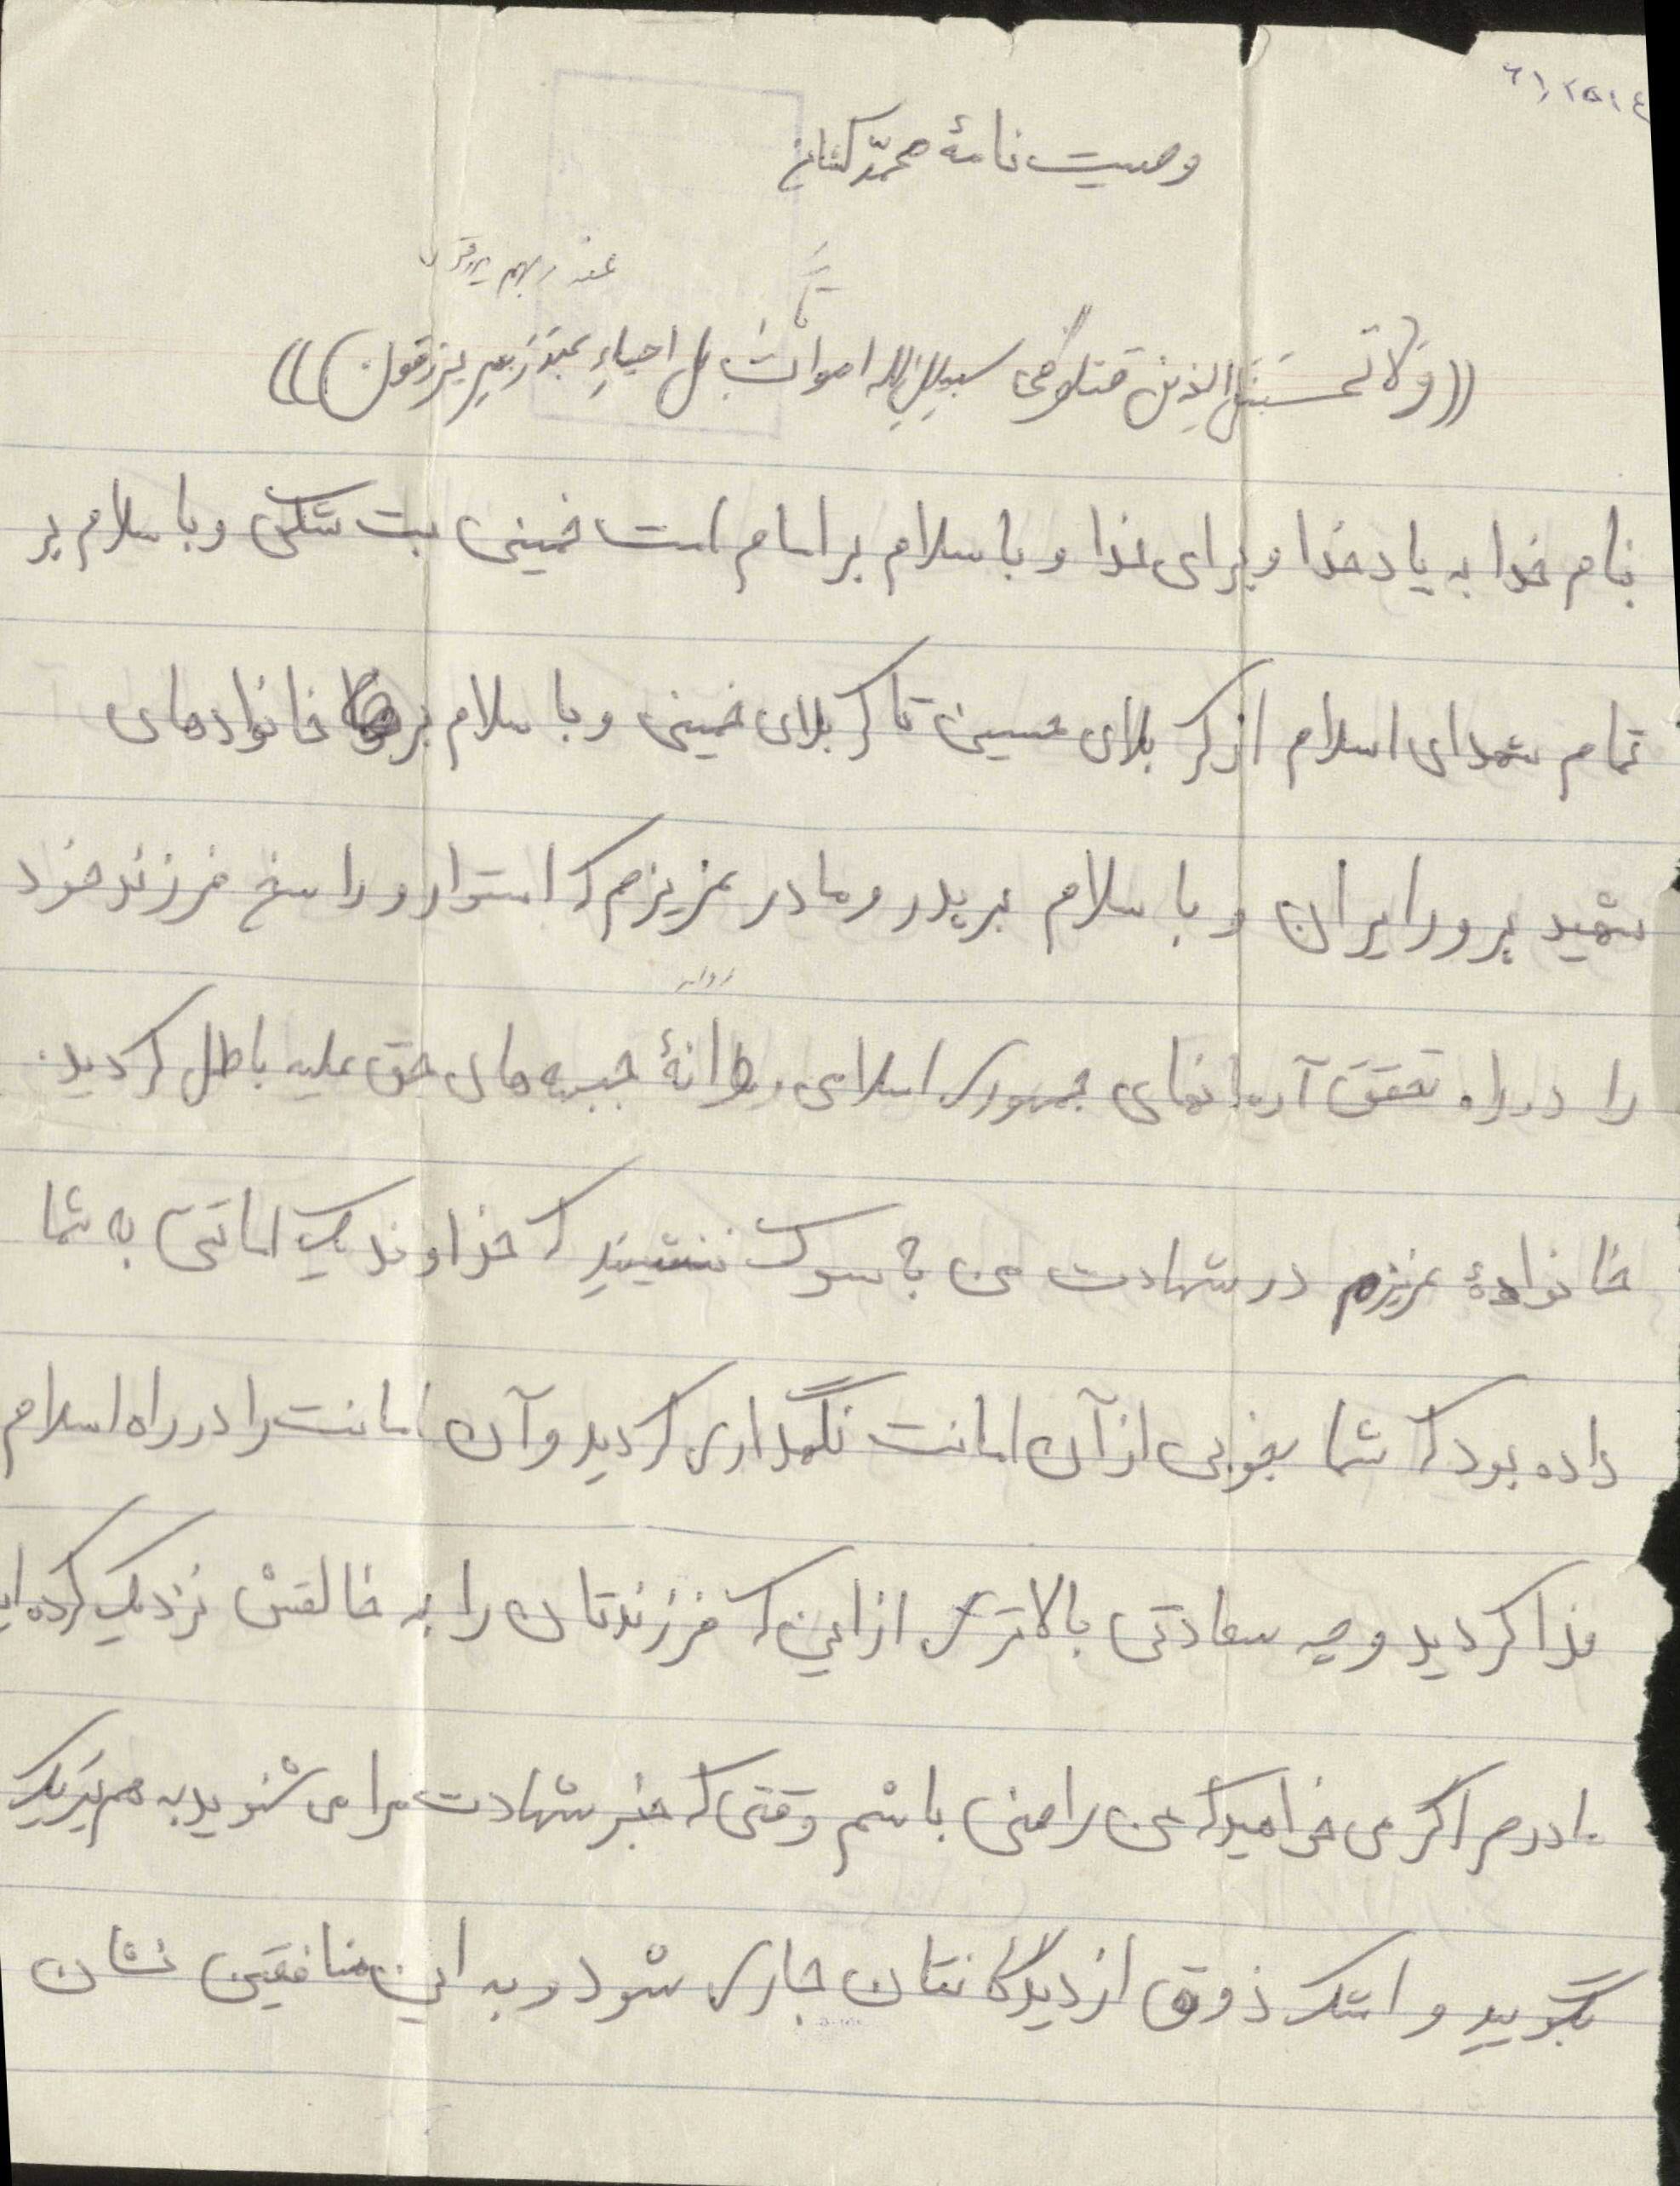 ۶۱٫۲۵۱۴
وصیت نامهٔ محمّد
عند ربهم یرزقون
((وَلا تحسَبَنَّ الذین قتلو فی سبیلِ الله امواتْ بل احیاءِ عِندَ رَبهِم یرزقون))
بنام خدا به یاد خدا و برای خدا و با سلام بر امام امت خمینی بت شکن و با سلام بر
تمام شهدای اسلام از کربلای حسین تا کربلای خمینی و با سلام بر خانوادهای
شهید پرور ایران و با سلام بر پدر و مادر عزیزم که استوار و راسخ فرزند خود
روانه
را در راه تحقق آرمانهای جمهوری اسلامی روانهٔ جبهه های حق علیه باطل کردید.
خانوادهٔ عزیزم در شهادت من به سوگ ننشینید که خداوند یک امانتی به شما
داده بود که شما بخوبی از آن امانت نگهداری کردید و آن امانت را در راه اسلام
فدا کردید و چه سعادتی بالاتر از این که فرزندتان را به خالقش نزدیک کرده اید
مادرم اگر می خواهید که من راضی باشم وقتی که خبر شهادت مرا می شنوید به هم تبریک
بگویید و اشک ذوق از دیدگانتان جاری شود و به این منافقین نشان